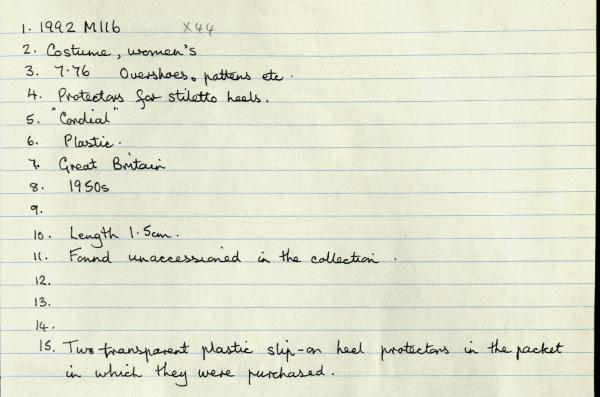 1. 1992 M116 X44
2. Costume, women's
3. 7.76 Overshoes, pattens etc.
4. Protectors for stiletto heels.
5. "Cordial"
6. Plastic.
7. Great Britain
8. 1950s
9.
10. Length 1.5cm.
11. Found unaccessioned in the collection.
12.
13.
14.
15. Two transparent plastic slip-on heel protectors in the packet
in which they were purchased.